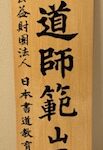 道師範山
益財團法人 日本書道教育